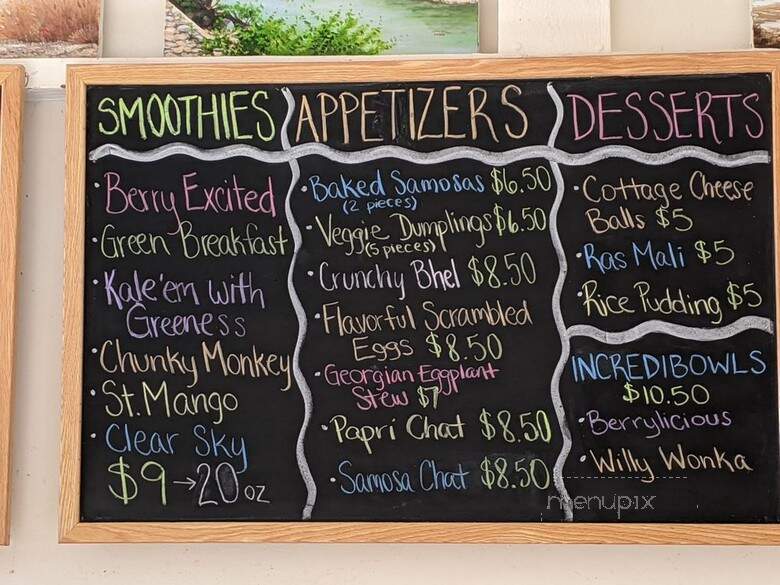 SMOOTHIES
• Berry Excited
• Green Breakfast
• Kale'em with
Greeness
• Chunky Monkey
• St. Mango
• Clear Sky
$9 → 20 oz
APPETIZERS
• Baked Samosas $6.50
(2 pieces)
• Veggie Dumplings $6.50
(5 pieces)
• Crunchy Bhel $8.50
• Flavorful Scrambled
Eggs $8.50
• Georgian Eggplant
Stew $7
• Papri Chat $8.50
• Samosa Chat $8.50
DESSERTS
• Cottage Cheese
Balls $5
• Ras Mali $5
• Rice Pudding $5
INCREDIBOWLS
$10.50
• Berrylicious
• Willy Wonka
menupix